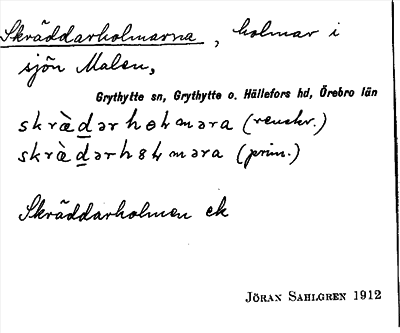 Skräddarholmarna, holmar i
sjön Malen,
Grythytte sn, Grythytte o. Hällefors hd, Örebro län
(renskr.)
(prim.)
Skräddarholmen ek
JÖRAN SAHLGREN 1912